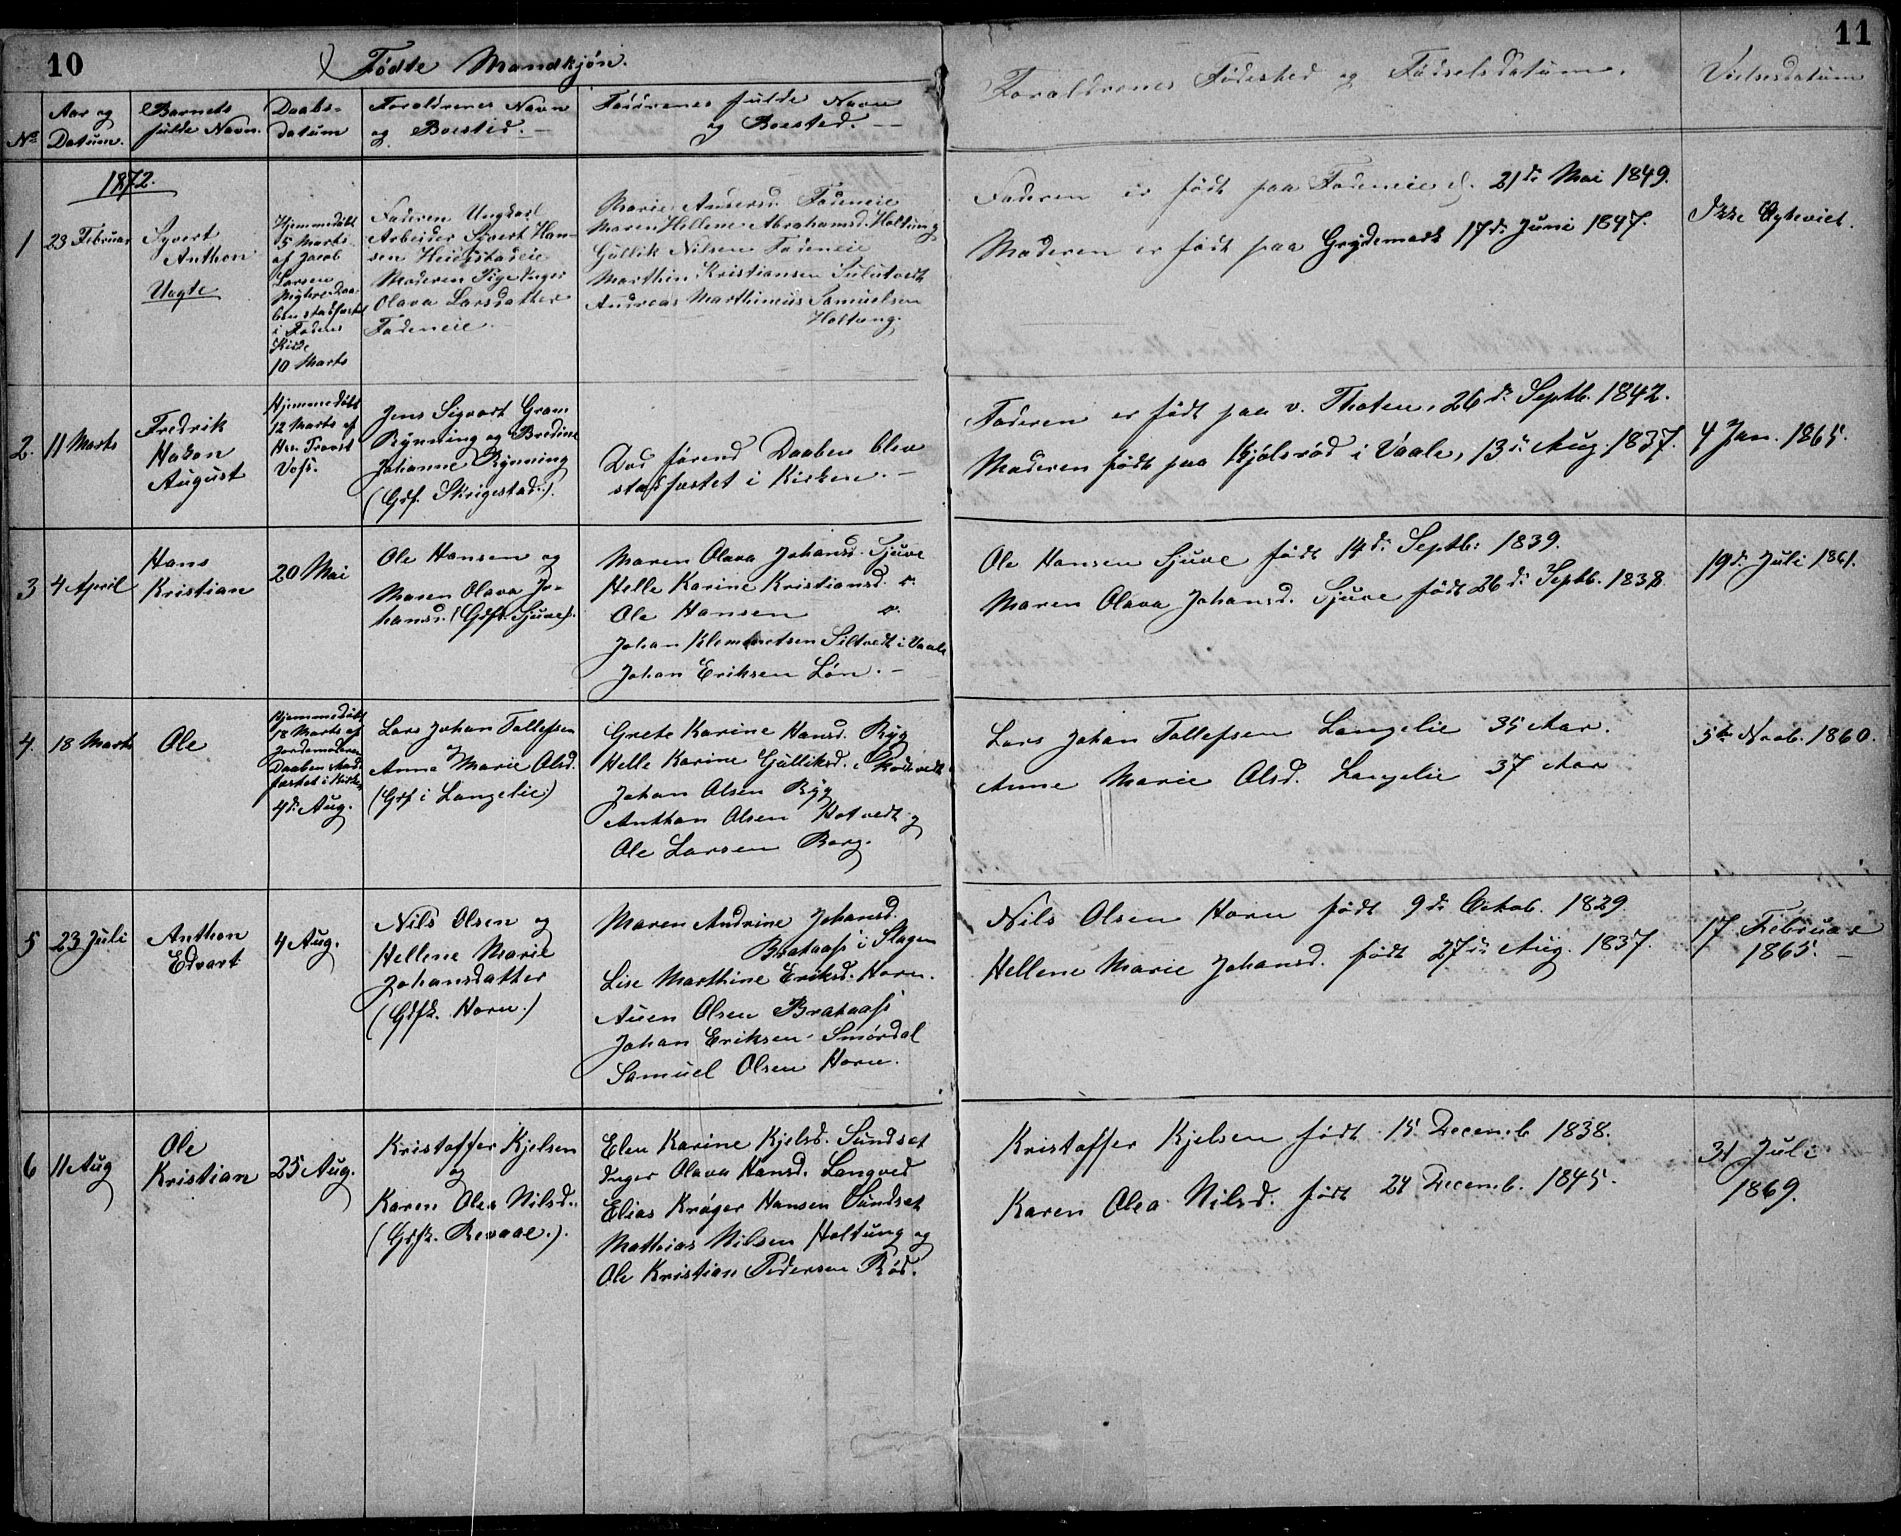 10
Fødte Mandkjøn.
No
Aar og Datum.
Barnets fulde Navn.
Daabsdatum
Foraldrenes Navn og Bosted.
Faddrenes fulde Navn og Bosted.
1872.
1
23 Februar
Syvert
Anthon
Uægte
Hjemmedøbt
5 Marts
af Jacob
Larsen
i Fodens
Kirke
10 Marts
Faderen Ungkarl
Arbeider Syvert Han-
sen
Moderen Pige Inger
Olava Larsdatter
Fadeneie
Marie Andersd. Fadeneie
Maren Hellene Abrahamsd. Holtung
Gullik Nilsen Fadeneie
Marthin Kristiansen
Andreas Marthinius Samuelsen
Holtung.
2.
11 Marts
Fredrik
Hakon
August
Hjemmedøbt
12 Marts af
Hr. Provst
Voss.
Jens Sigvart Gram
Rynning og Bredine
Johanne Rynning
(Gdf. Skrigestad.).
Død førend Daaben blev
stadfæstet i Kirken. —
3
4 April
Hans
Kristian
20 Mai
Ole Hansen og
Maren Olava Jo-
hansd. (Gdfk. Sjuve).
Maren Olava Johansd. Sjuve
Helle Karine Kristiansd.
Ole Hansen
Johan Klemmetsen Siltvedt i Vaale
Johan Eriksen Løn. —
4.
18 Marts
Ole
Hjemmedøbt
18 Marts af
Jordemoderen
Daaben stad-
fæstet i Kirken
4de Aug.
Lars Johan Tollefsen
Anne Marie Olsd.
(Gdf i Langelie)
Grete Karine Hansd. Ryg
Helle Karine Gulliksd.
Johan Olsen Ryg
Anthon Olsen Hotvedt og
Ole Larsen Borg.
5
23 Juli
Anthon
Edvart
4 Aug.
Nils Olsen og
Hellene Marie
Johansdatter
(Gdfk. Horn.)
Maren Andrine Johansd.
Brataass i Slagen
Lise Marthine Eriksd. Horn.
Auen Olsen Brataass
Johan Eriksen Smørdal
Samuel Olsen Horn.
6
11 Aug
Ole
Kristian
25 Aug.
Kristoffer Kjelsen
og
Karen Olea Nilsd.
(Gdfk. Revaae.).
Elen Karine Kjelsd. Sundset
Inger Olava Hansd. Langved
Elias Krøger Hansen Sundset
Mathias Nilsen Holtung og
Ole Kristian Pedersen Rød.
11
Foraldrenes Fødested og Fødselsdatum.
Vielsesdatum
Faderen er født paa Fadeneie d. 21de Mai 1849.
Moderen er født paa Grydemark 17de Juni 1847.
Ikke Egteviet.
Faderen er født paa v. Thoten, 26de Septb. 1842.
Moderen født paa Kjølsrød i Vaale, 13de Aug. 1837.
4 Jan. 1865.
Ole Hansen Sjuve født 14de Septb. 1839.
Maren Olava Johansd. Sjuve født 26de Septb. 1838.
19de Juli 1861.
Lars Johan Tollefsen Langelie 35 Aar.
Anne Marie Olsd. Langelie 37 Aar
5te Novb. 1860.
Nils Olsen Horn født 9de Octob. 1829
Hellene Marie Johansd. født 27de Aug. 1837.
17 Februar
1865. —
Kristoffer Kjelsen født 15 Decemb. 1838.
Karen Olea Nilsd. født 24 Decemb. 1845.
31 Juli
1869.